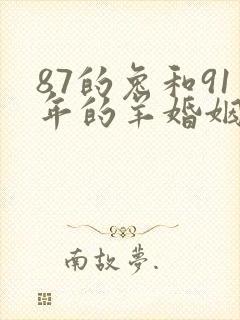 87的兔和91
年的羊婚姻
南故夢.